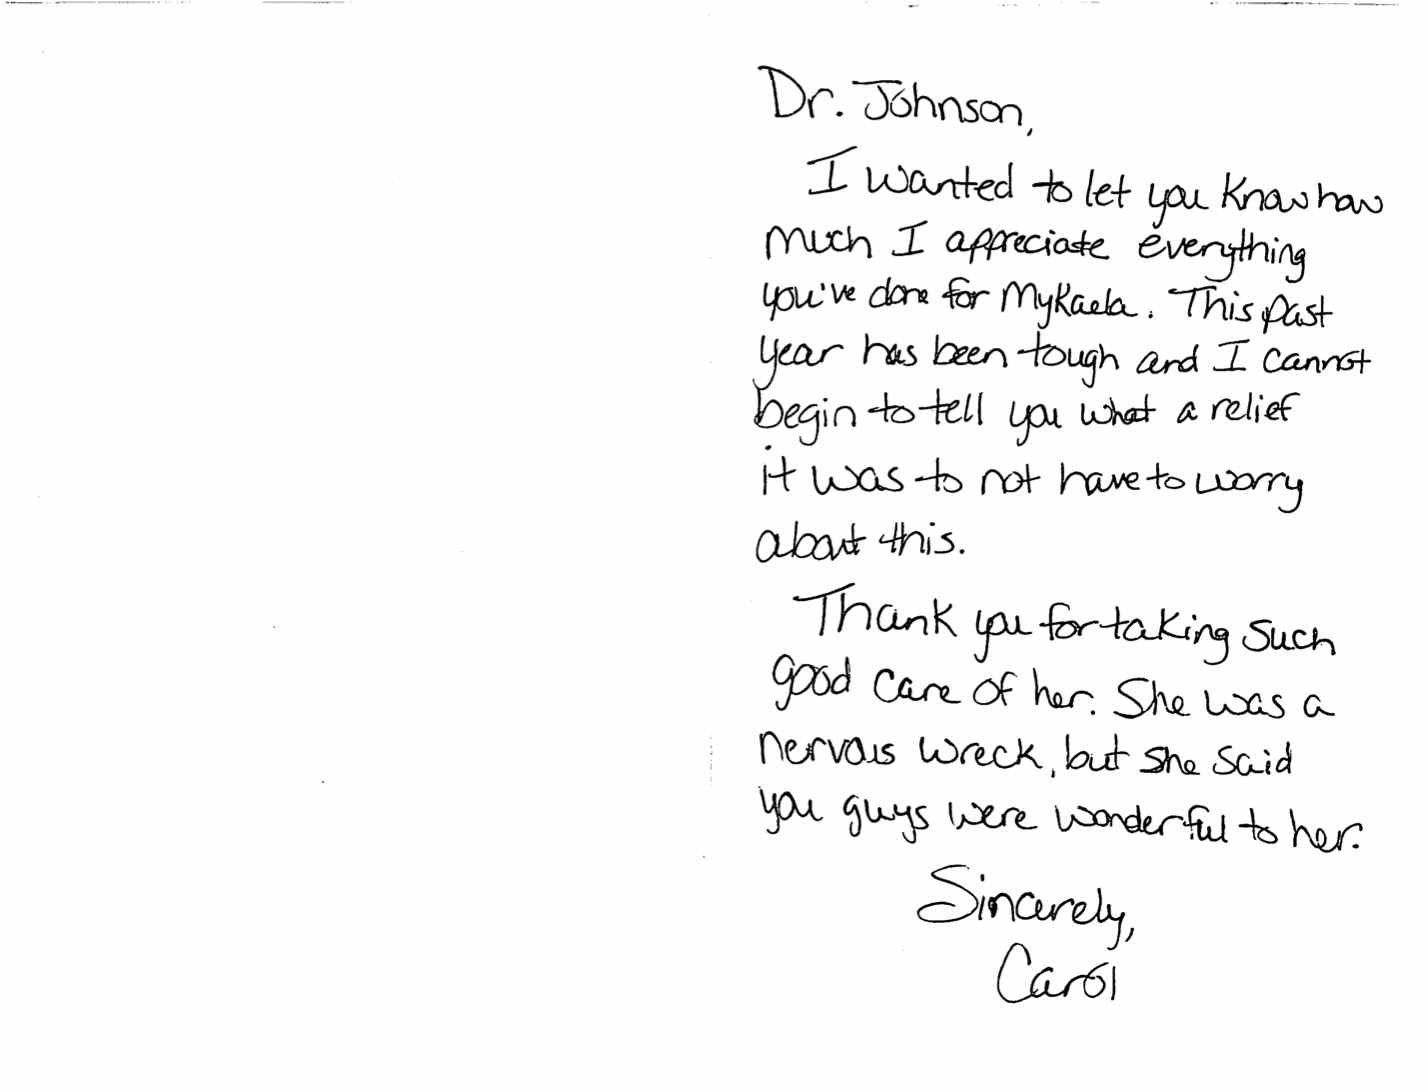 Dr. Johnson,
I wanted to let you know how
much I appreciate everything
you've done for Mykaela. This past
year has been tough and I cannot
begin to tell you what a relief
it was to not have to worry
about this.
Thank you for taking such
good care of her. She was a
nervous wreck, but she said
you guys were wonderful to her.
Sincerely,
Carol